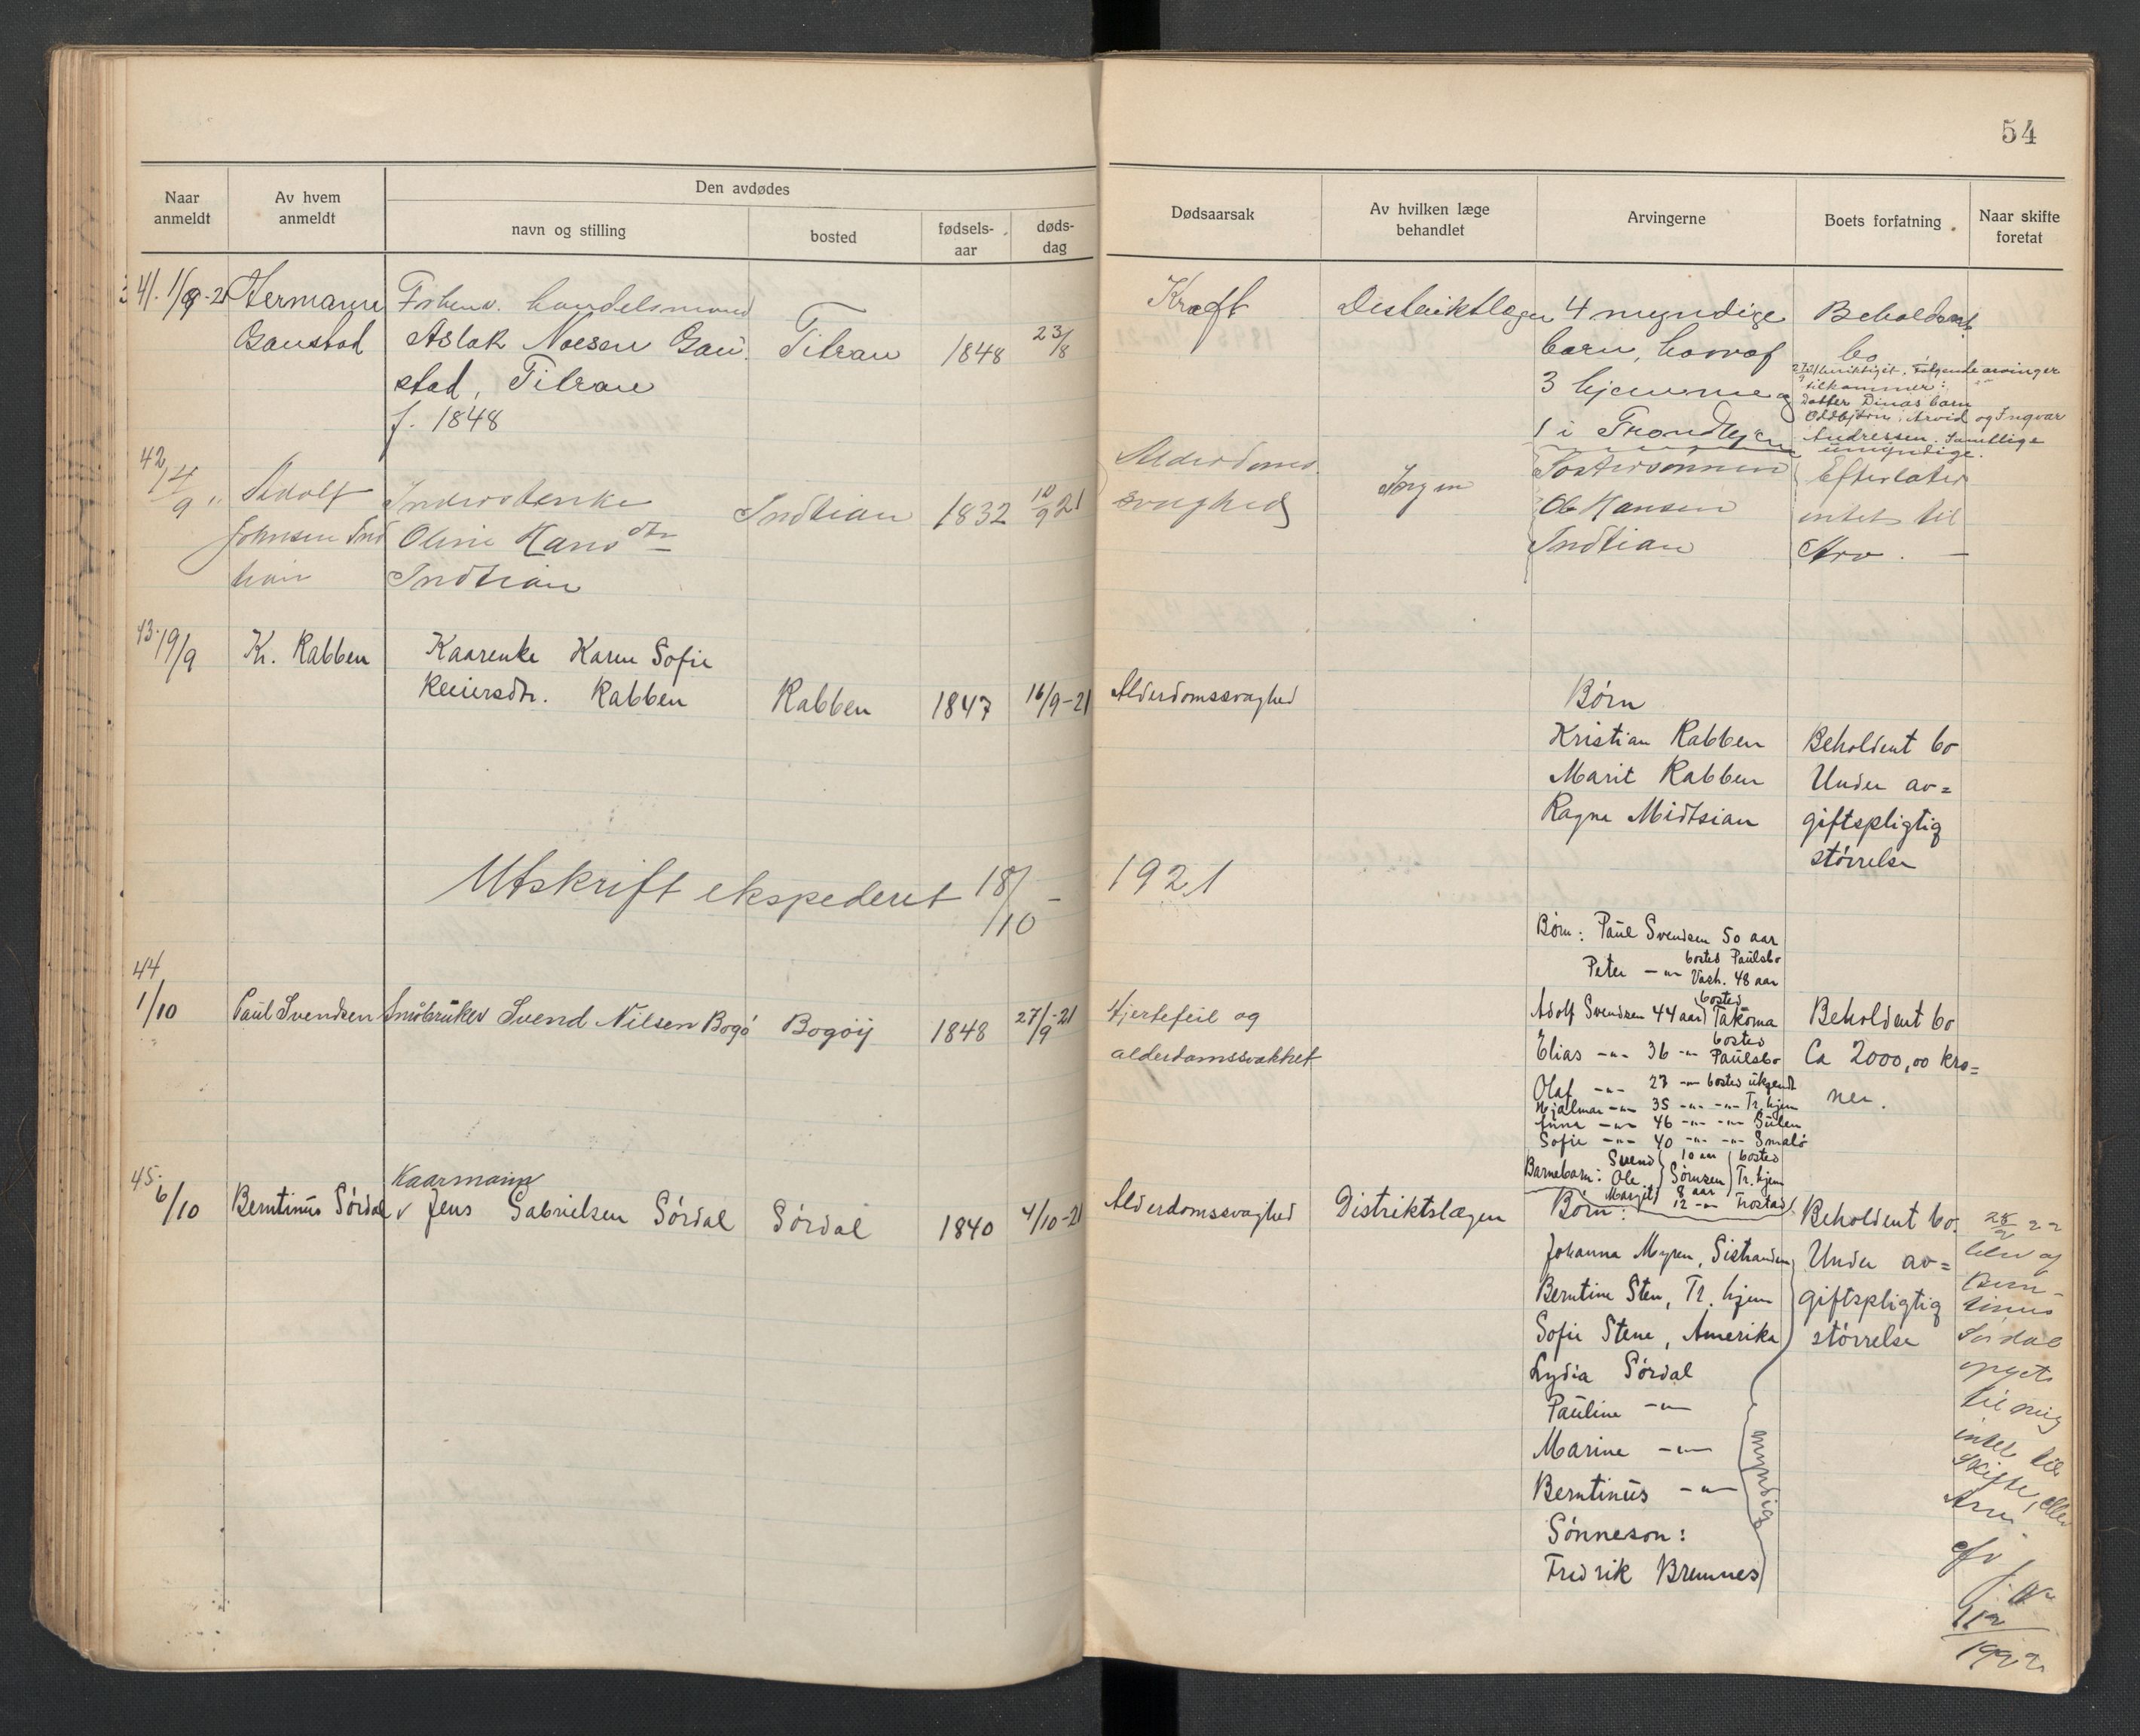 54
Naar anmeldt
Av hvem anmeldt
Den avdødes
navn og stilling
bosted
fødsels-aar
døds-dag
Dødsaarsak
Av hvilken læge behandlet
Arvingerne
Boets forfatning
Naar skifte foretat
41. 1/9-21
Hermann
Gaustad
handelsmand
Aslak Noesen Gau
stad, Titran
f. 1848
Titran
1848
23/8
Kræft
Distriktlægen
4 myndige
barn, hvorav
3 hjemme og
1 i Trondhjem
Beholdent
bo
Følgende arvinger
tilkommer:
Datter Dinas barn
Oddbjørn, Arvid og Ingvar
Andressen. Samtlige
umyndige.
42
14/9 "
Adolf
Johnsen Ind
tian
Inderstenke
Oline Hansdtr
Indtian
Indtian
1832
10/9 21
Alderdoms
svaghed
Ingen
Fostersønnen
Ole Hansen
Indtian
Efterlater
intet til
Arv. —
43. 19/9
K. Rabben
Kaarenke Karen Sofie
Reiersdtr. Rabben
Rabben
1847
16/9-21
Alderdomssvaghed
Børn
Kristian Rabben
Marit Rabben
Ragna Midtsian
Beholdent bo
Under av=
giftspligtig
størrelse
Utskrift ekspedert 18/10 - 1921
44
1/10
Paul Svendsen
Småbruker Svend Nilsen Bogø
Bogøy
1848
27/9-21
Hjertefeil og
alderdomssvakhet
Børn: Paul Svendsen 50 aar
bosted Paulsbo
Peter -"- Vash. 48 aar
Adolf Svendsen 44 aar bosted Takoma
Elias -"- 36 -"- bosted Paulsbo
Olaf -"- 27 -"- bosted ukjendt
Hjalmar -"- 35 -"- -"- Tr.hjem
Anna -"- 46 -"- -"- Sulen
Sofie -"- 40 -"- -"- Smalø
Barnebarn: Svend 10 aar bosted
Ole Sørnsen Tr. hjem
8 aar
Margit 12 -"- Frostad
Beholdent bo
Ca 2000,00 kro=
ner.
45.
6/10
Berntinus Sørdal
Kaarmann
v Jens Gabrielsen Sørdal
Sørdal
1840
4/10-21
Alderdomssvaghed
Distriktslægen
Børn:
Johanna Myren, Sistranden
Berntine Sten, Tr. hjem
Sofie Stene, Amerika
Lydia Sørdal
Pauline -"-
Marine -"-
Berntinus -"-
Sønneson:
Fridrik Bremnes
myndig
Beholdent bo.
Under av=
giftspligtig
størrelse
22
blev af
Bern-
tinus
Sørdal
opgit
til mig
intet til
Skifte, eller
Arv
1922